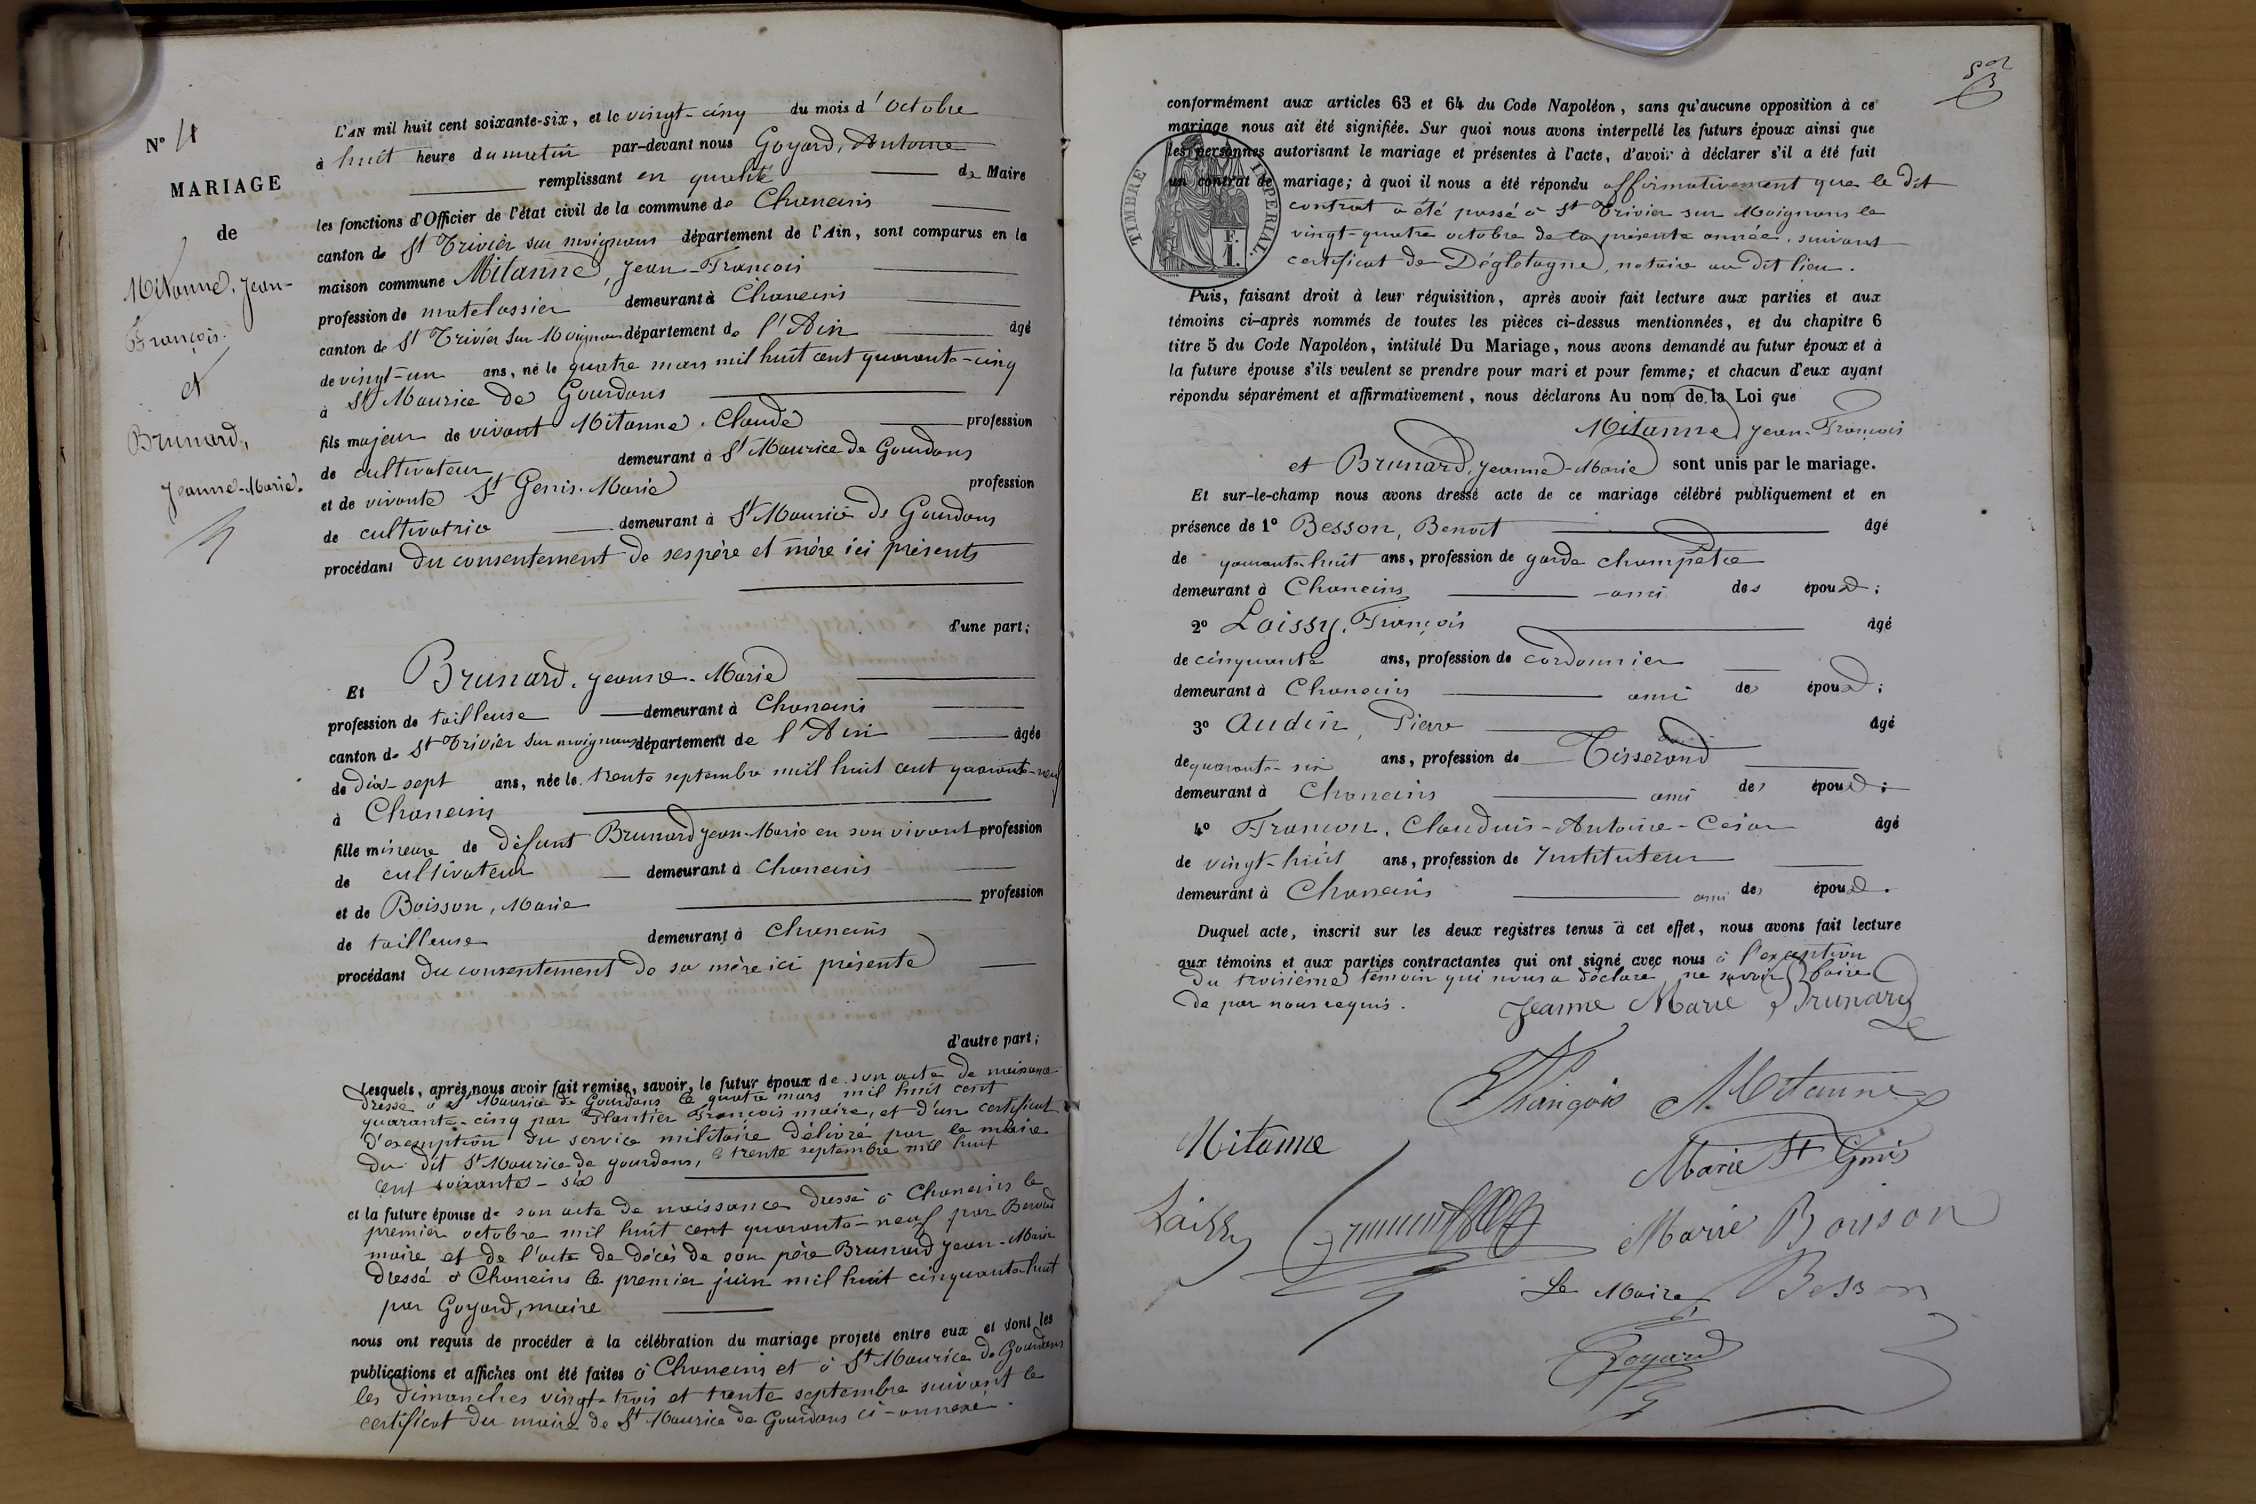 N° 11
MARIAGE
de
Mitanne, Jean-
François.
et
Brunard,
Jeanne-Marie.
L'AN mil huit cent soixante-six, et le vingt-cinq du mois d'Octobre
à huit heure du matin par-devant nous Goyard, Antoine
remplissant en qualité de Maire
les fonctions d'Officier de l'état civil de la commune de Chaneins
canton de St Trivier sur moignans département de l'Ain, sont comparus en la
maison commune Mitanne, Jean-François
profession de matelassier demeurant à Chaneins
canton de St Trivier sur Moignans département de l'Ain âgé
de vingt-un ans, né le quatre mars mil huit cent quarante-cinq
à St Maurice de Gourdans
fils majeur de vivant Mitanne, Claude profession
de cultivateur demeurant à St Maurice de Gourdans
et de vivante St Genis, Marie profession
de cultivatrice demeurant à St Maurice de Gourdans
procédant du consentement de ses père et mère ici présents
d'une part;
Et Brunard, Jeanne-Marie
profession de tailleuse demeurant à Chaneins
canton de St Trivier sur moignans département de l'Ain âgée
de dix-sept ans, née le trente septembre mil huit cent quarante-neuf
à Chaneins
fille mineure de défunt Brunard Jean-Marie en son vivant profession
de cultivateur demeurant à Chaneins
et de Boisson, Marie profession
de tailleuse demeurant à Chaneins
procédant du consentement de sa mère ici présente
d'autre part;
Lesquels, après nous avoir fait remise, savoir, le futur époux de son acte de naissance
dressé à St Maurice de Gourdans le quatre mars mil huit cent
quarante-cinq par Plantier François maire, et d'un certificat
d'exemption du service militaire délivré par le maire
du dit St Maurice de gourdans, le trente septembre mil huit
cent soixante-six
et la future épouse de son acte de naissance dressé à Chaneins le
premier octobre mil huit cent quarante-neuf par
maire et de l'acte de décès de son père Brunard Jean-Marie
dressé à Chaneins le premier juin mil huit cinquante-huit
par Goyard, maire
nous ont requis de procéder à la célébration du mariage projeté entre eux et dont les
publications et affiches ont été faites à Chaneins et à St Maurice de Gourdans
les dimanches vingt-trois et trente septembre suivant le
certificat du maire de St Maurice de Gourdans ci-annexé.
conformément aux articles 63 et 64 du Code Napoléon, sans qu'aucune opposition à ce
mariage nous ait été signifiée. Sur quoi nous avons interpellé les futurs époux ainsi que
les personnes autorisant le mariage et présentes à l'acte, d'avoir à déclarer s'il a été fait
un contrat de mariage; à quoi il nous a été répondu affirmativement que le dit
contrat a été passé à St Trivier sur Moignans le
vingt-quatre octobre de la présente année, suivant
certificat de Dégletagne, notaire au dit lieu.
TIMBRE IMPERIAL
F.
1.
Puis, faisant droit à leur réquisition, après avoir fait lecture aux parties et aux
témoins ci-après nommés de toutes les pièces ci-dessus mentionnées, et du chapitre 6
titre 5 du Code Napoléon, intitulé Du Mariage, nous avons demandé au futur époux et à
la future épouse s'ils veulent se prendre pour mari et pour femme; et chacun d'eux ayant
répondu séparément et affirmativement, nous déclarons Au nom de la Loi que
Mitanne, Jean-François
et Brunard, Jeanne-Marie sont unis par le mariage.
Et sur-le-champ nous avons dressé acte de ce mariage célébré publiquement et en
présence de 1° Besson, Benoit âgé
de quarante-huit ans, profession de garde champêtre
demeurant à Chaneins ami des époux;
2° Loissy, François âgé
de cinquante ans, profession de cordonnier
demeurant à Chaneins ami des époux;
3° Audin, Pierre âgé
de quarante-six ans, profession de Tisserand
demeurant à Chaneins ami des époux;
4° Francon, Claudius-Antoine-César âgé
de vingt-huit ans, profession de Instituteur
demeurant à Chaneins ami des époux.
Duquel acte, inscrit sur les deux registres tenus à cet effet, nous avons fait lecture
aux témoins et aux parties contractantes qui ont signé avec nous à l'exception
du troisième témoin qui nous a déclaré ne savoir faire
de par nous requis.
Jeanne Marie Brunard
François Mitanne
Mitanne
Marie St Genis
Laissy
Marie Boisson
Le Maire Besson
Goyard